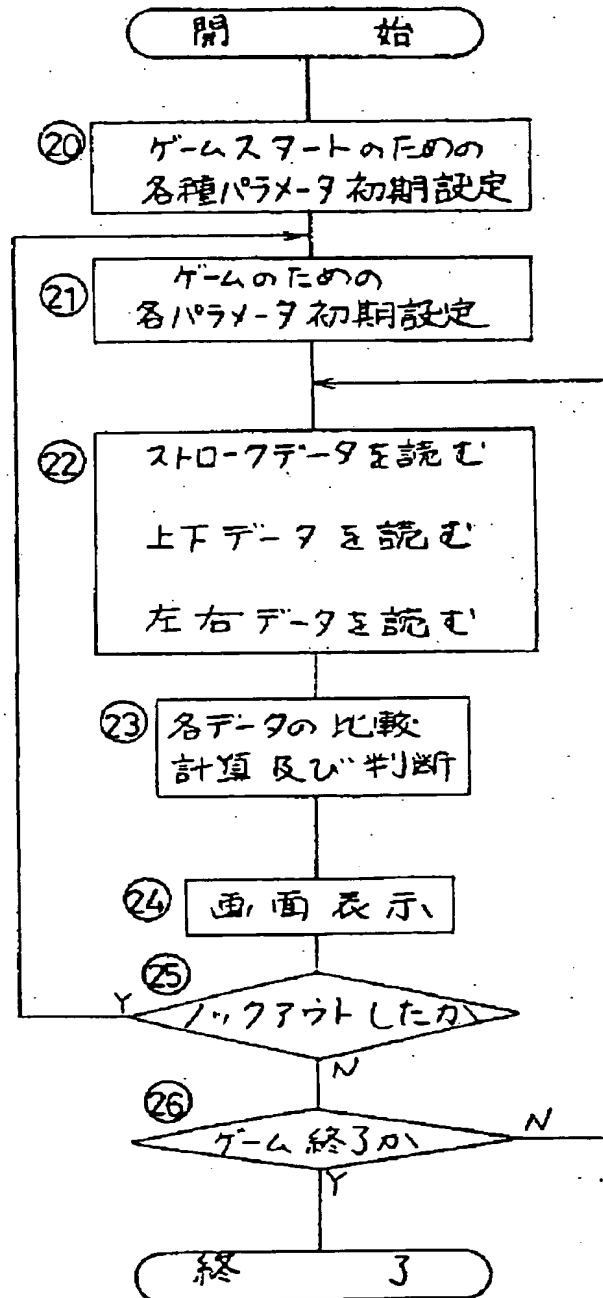 開 始
⑳ ゲームスタートのための
各種パラメータ初期設定
㉑ ゲームのための
各パラメータ初期設定
㉒ ストロークデータを読む
上下データを読む
左右データを読む
㉓ 各データの比較
計算及び判断
㉔ 画面表示
㉕
Y ノックアウトしたか
N
㉖
ゲーム終了か N
Y
終 了